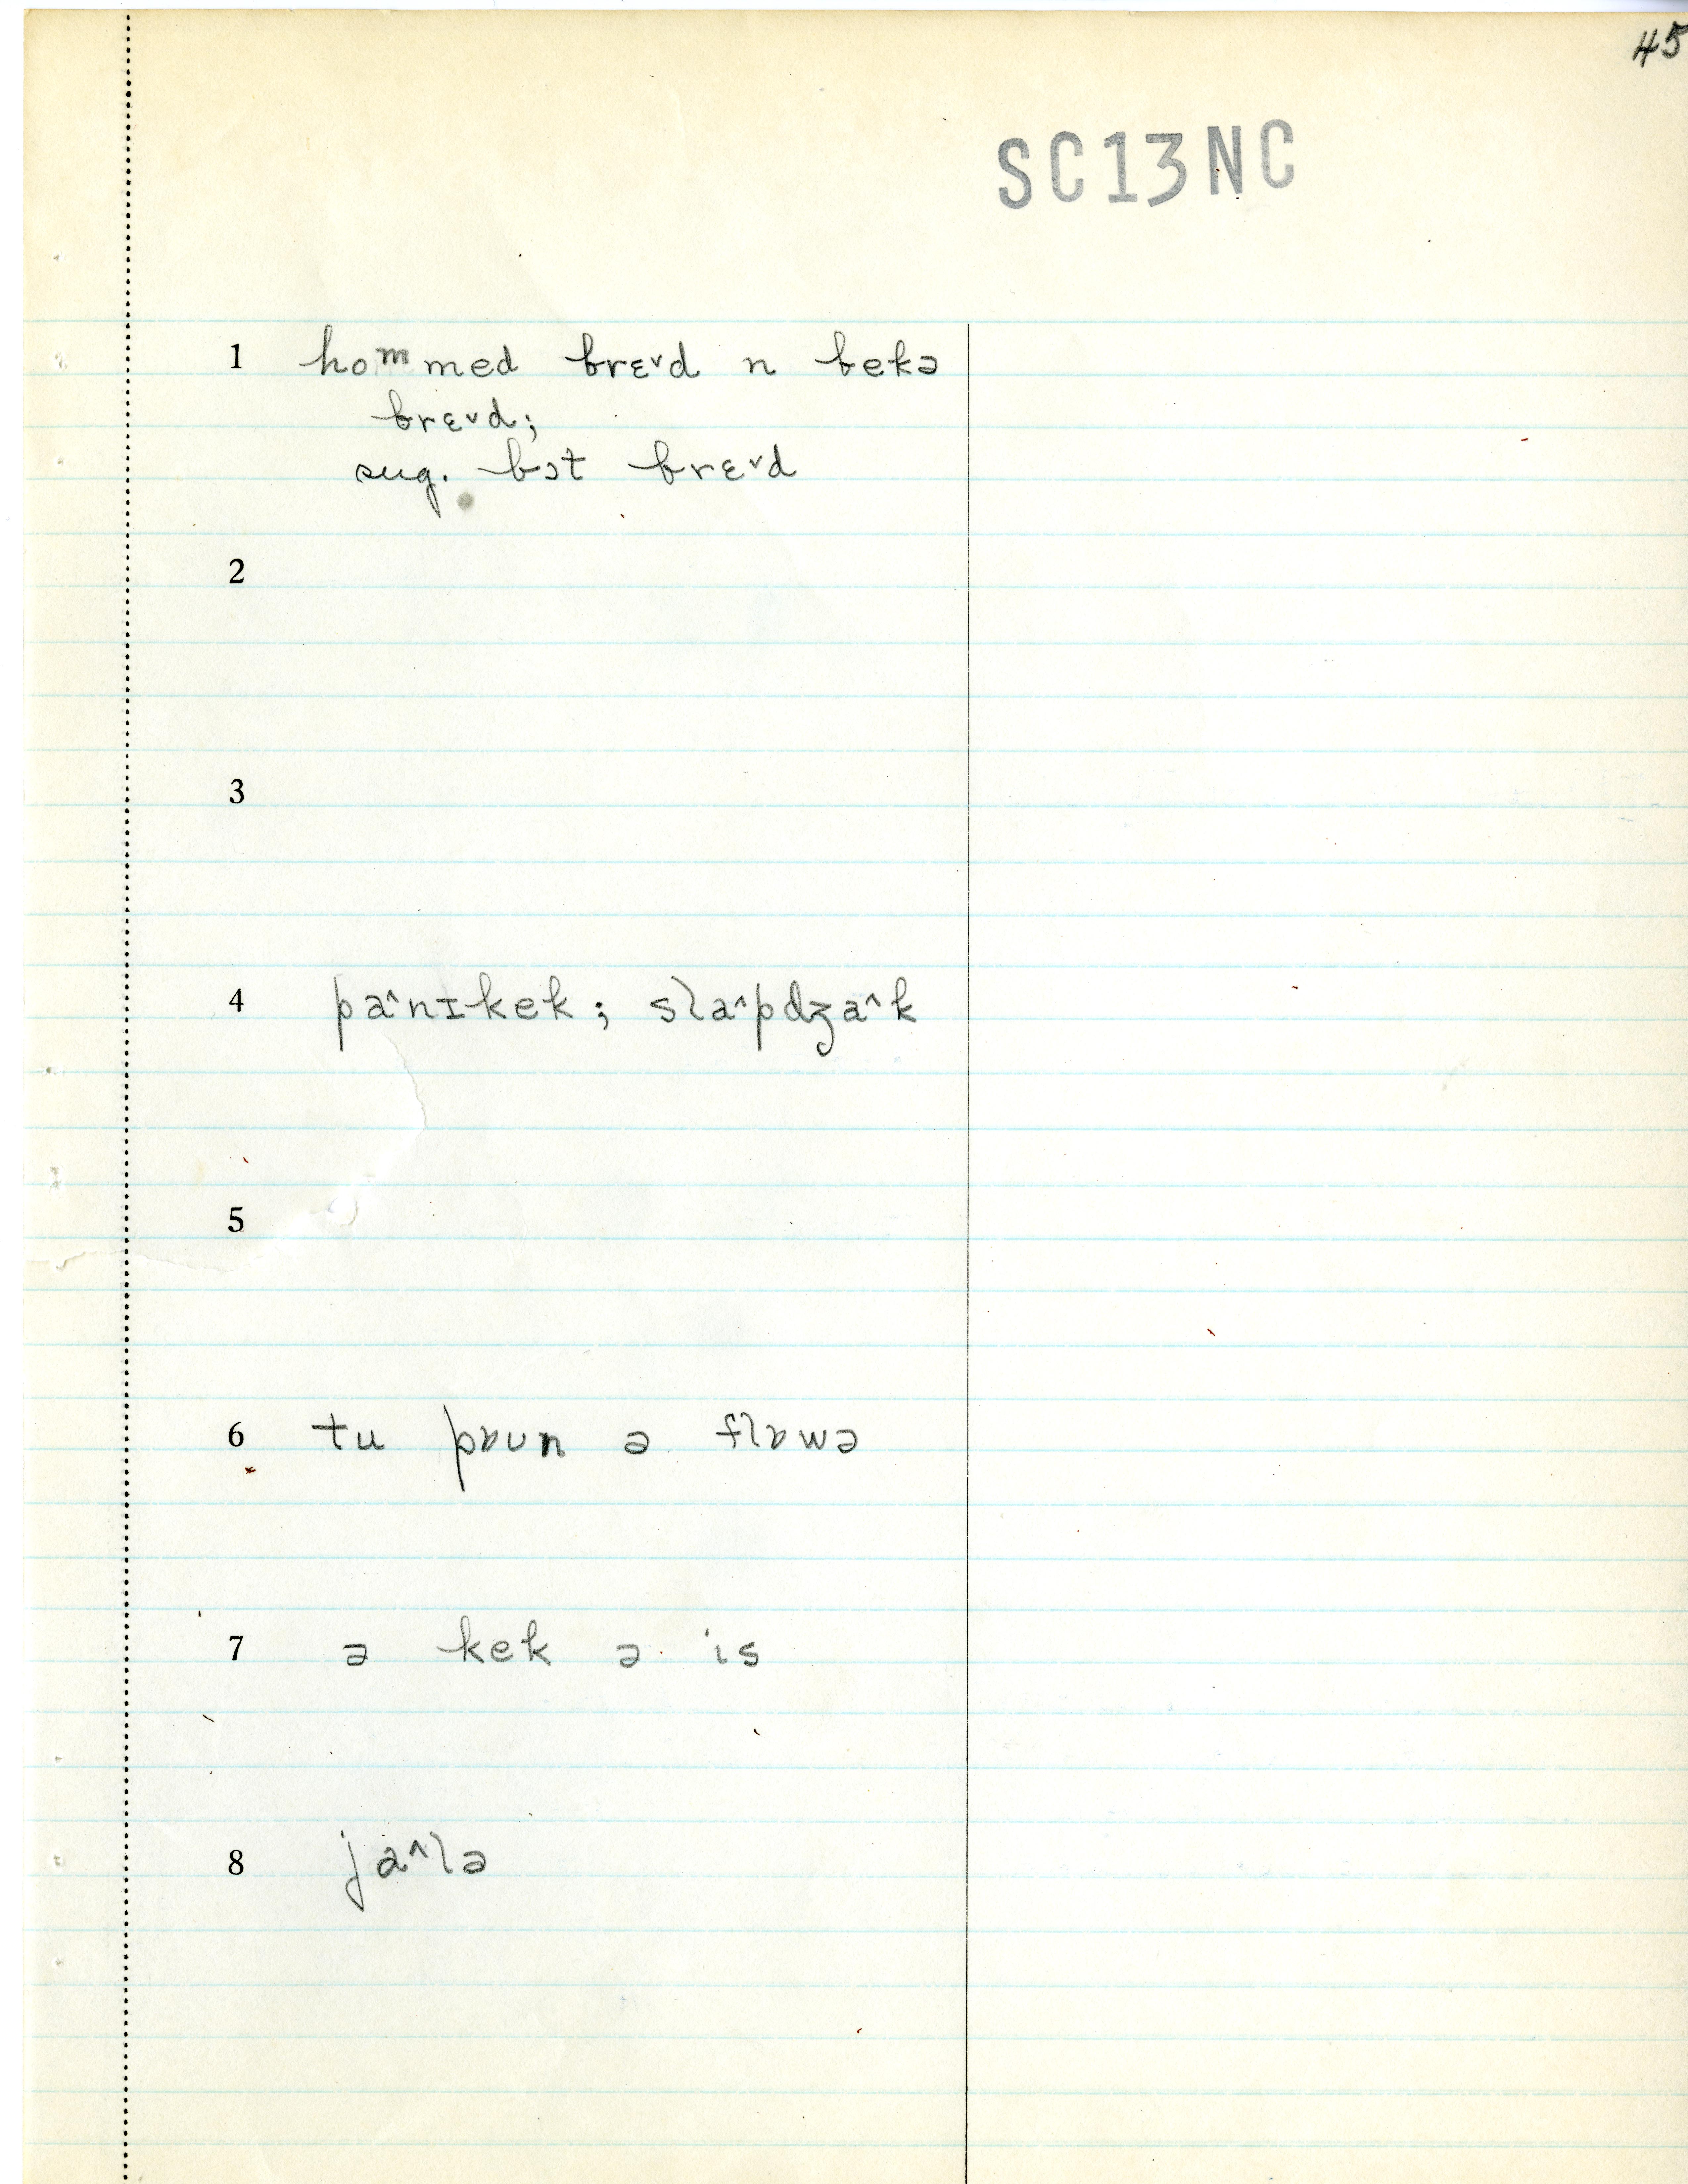 45
SC13NC
1 hoᵐmed brɛ˅d n bekə
brɛ˅d;
sug. bɔt brɛ˅d
2
3
4 pa^nɪkek; sla^pdʒa^k
5
6 tu pɒun ə flɒwə
7 ə kek ə is
8 ja^lə